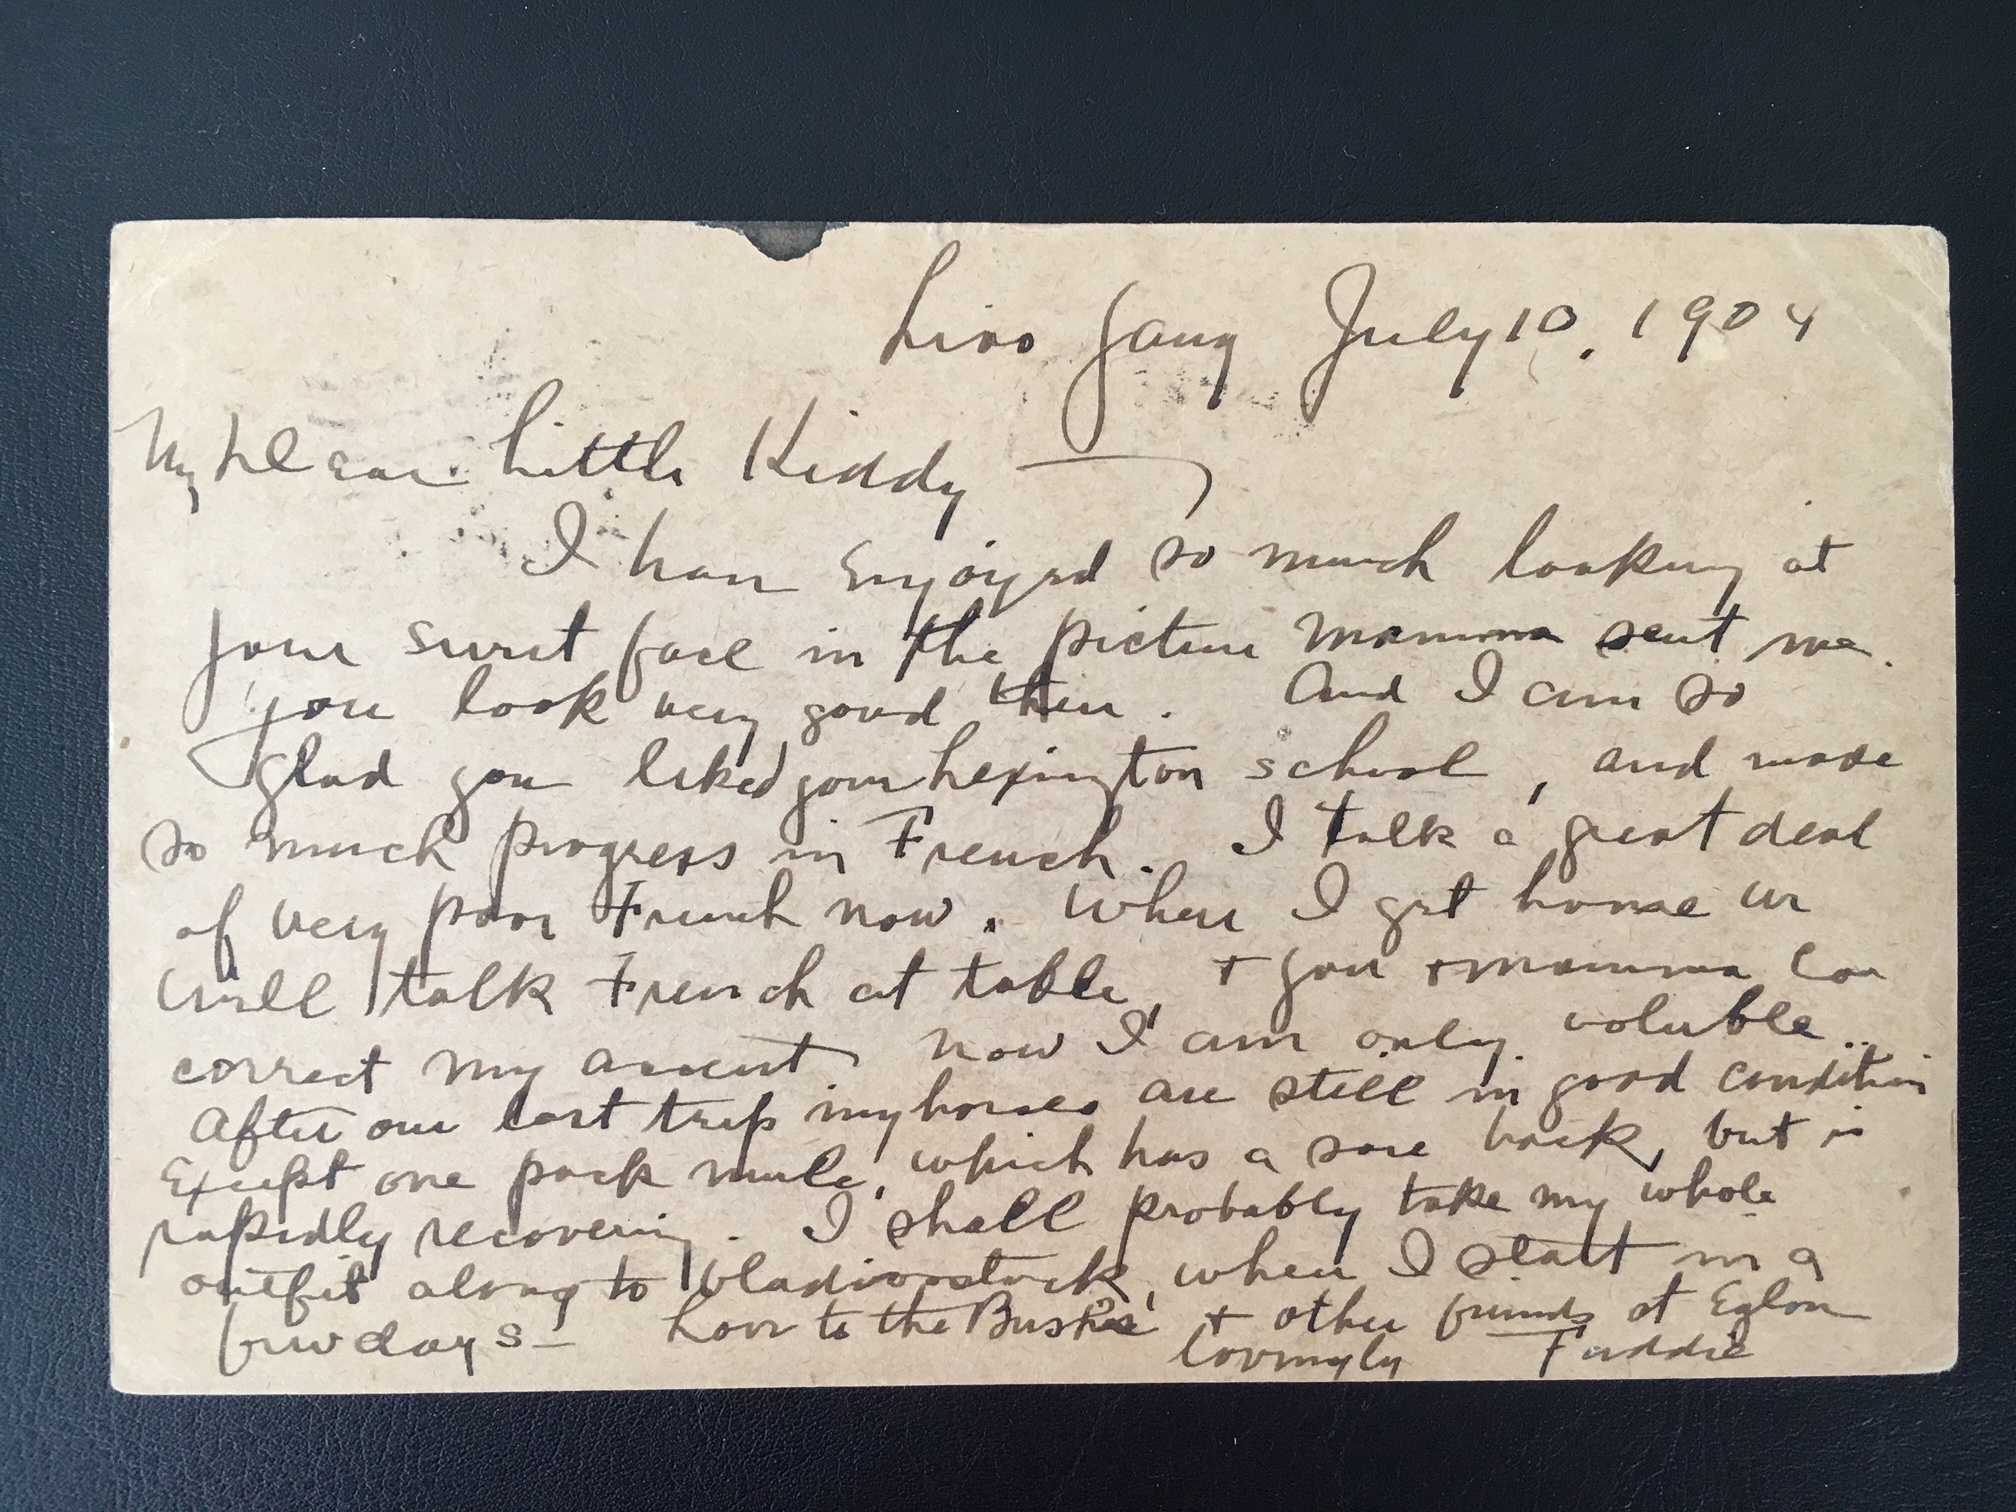 Liao Yang July 10, 1904
My Dear Little Kiddy
I have enjoyed so much looking at
your sweet face in the picture mamma sent me.
You look very good then. And I am so
glad you liked your Lexington school, and made
so much progress in French. I talk a great deal
of very poor French now. When I get home we
will talk French at table, + you + mamma can
correct my accent. Now I am only voluble.
After our last trip my horses are still in good condition
Except one pack mule, which has a sore back, but is
rapidly recovering. I shall probably take my whole
outfit along to Vladivostock, when I start in a
few days — Love to the + other friends at Eglon
Lovingly Faddie